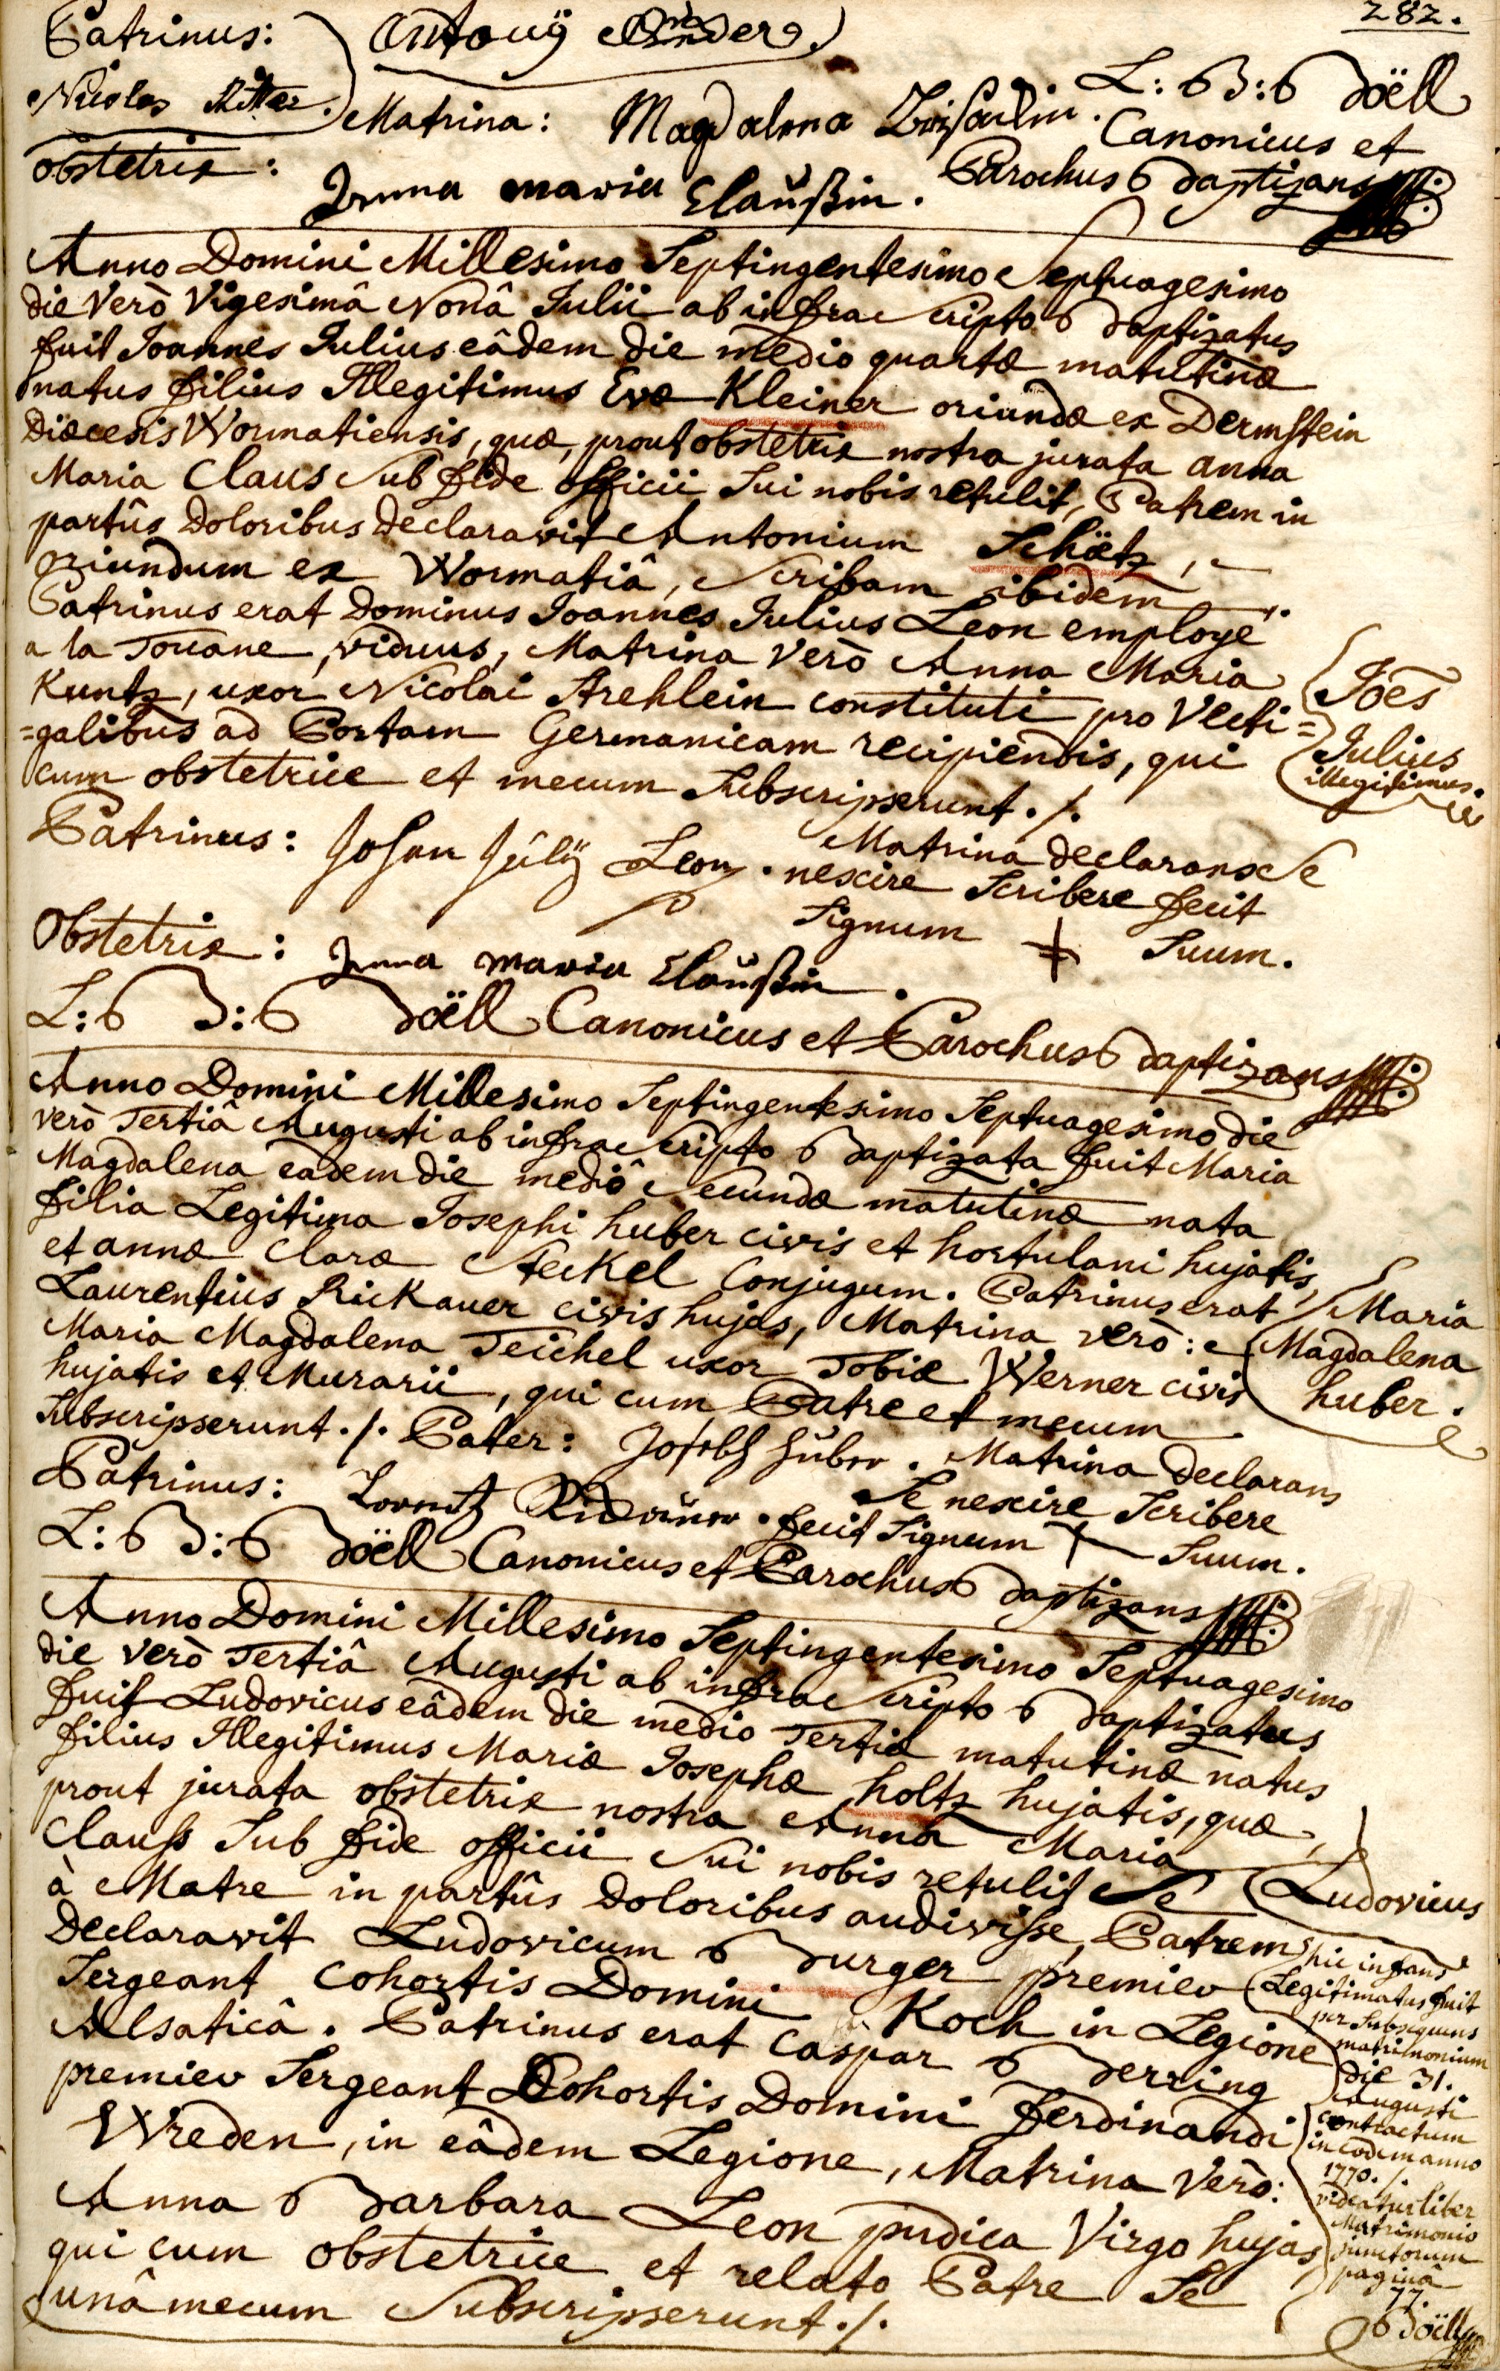 282.
Patrinus: Antonÿ
Nicolas Ritter. Matrina: Magdalena L: B: Boëll
Canonicus et
obstetrix: Anna maria Claußin. Parochus Baptizans
Anno Domini Millesimo Septingentesimo Septuagesimo
die Verò Vigesimâ Nonâ Julii ab infra Scripto Baptizatus
fuit Joannes Julius eâdem die medio quartæ matutinæ
natus filius Illegitimus Evæ Kleiner oriundæ ex Dermstein
Diæcesis Wormatiensis, quæ, prout obstetrix nostra jurata anna
Maria Claus Sub fide officii Sui nobis retulit, Patrem in
partûs Doloribus declaravit Antonium Schëtz,
oriundum ex Wormatiâ, Scribam ibidem.
Patrinus erat Dominus Joannes Julius Leon employé
a la Touane, viduus, Matrina Verò Anna Maria
Kuntz, uxor Nicolai Strehlein constituti pro Vecti=
=galibus ad Portam Germanicam recipiendis, qui
cum obstetrice et mecum Subscripserunt ./.
Joēs
Julius
illegitimus.
Patrinus: Johan Julÿ Leon. Matrina declarans Se
nescire Scribere fecit
Signum + Suum.
Obstetrix: Anna maria Claußin.
L: B: Boëll Canonicus et Parochus Baptizans
Anno Domini Millesimo Septingentesimo Septuagesimo die
verò Tertiâ Augusti ab infra Scripto Baptizata fuit Maria
Magdalena eadem die mediô Secundæ matutinæ nata
filia Legitima Josephi huber civis et hortulani hujatis,
et annæ Claræ Steckel Conjugum. Patrinus erat
Laurentius Rickauer civis hujas, Matrina verò:
Maria Magdalena Teichel uxor Tobiæ Werner civis
hujatis et Murarii, qui cum Patre et mecum
Subscripserunt ./. Pater: Joseph Huber. Matrina declarans
Maria
Magdalena
huber.
Patrinus: Lorentz Rickauer. Se nescire Scribere
fecit Signum + Suum.
L: B: Boëll Canonicus et Parochus Baptizans
Anno Domini Millesimo Septingentesimo Septuagesimo
die verò Tertiâ Augusti ab infra Scripto Baptizatus
fuit Ludovicus eâdem die medio Tertiæ matutinæ natus
filius Illegitimus Mariæ Josephæ holtz hujatis, quæ,
prout jurata obstetrix nostra Anna Maria
Clauss Sub fide officii Sui nobis retulit Se
à Matre in partûs Doloribus audivisse, Patrem
Declaravit Ludovicum Burger premier
Sergeant Cohortis Domini Koch in Legione
Alsaticâ. Patrinus erat Caspar Berring
premier Sergeant Cohortis Domini Ferdinandi
Wreden, in eâdem Legione, Matrina Verò:
Anna Barbara Leon pudica Virgo hujas
qui cum obstetrice et relato Patre Se
unâ mecum Subscripserunt ./.
Ludovicus
hic infans
Legitimatus fuit
per Subsequens
matrimonium
die 31.
Augusti
contractum
in eodem anno
1770. /.
videatur liber
Matrimonio
junctorum
paginâ
77.
Boëll